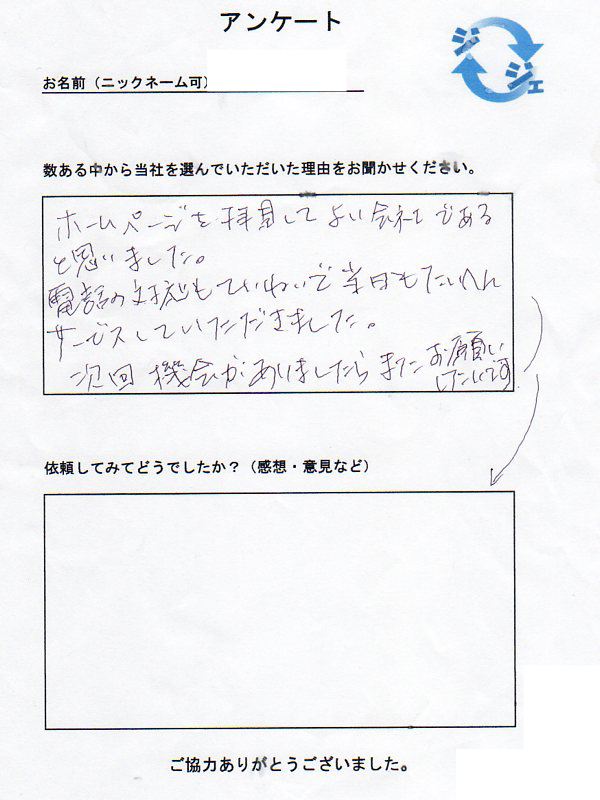 アンケート
ジジェ
お名前（ニックネーム可）
数ある中から当社を選んでいただいた理由をお聞かせください。
ホームページを拝見してよい会社である
と思いました。
電話の対応もていねいで当日もたいへん
サービスしていただきました。
次回機会がありましたらまたお願い
したいです。
依頼してみてどうでしたか？（感想・意見など）
ご協力ありがとうございました。